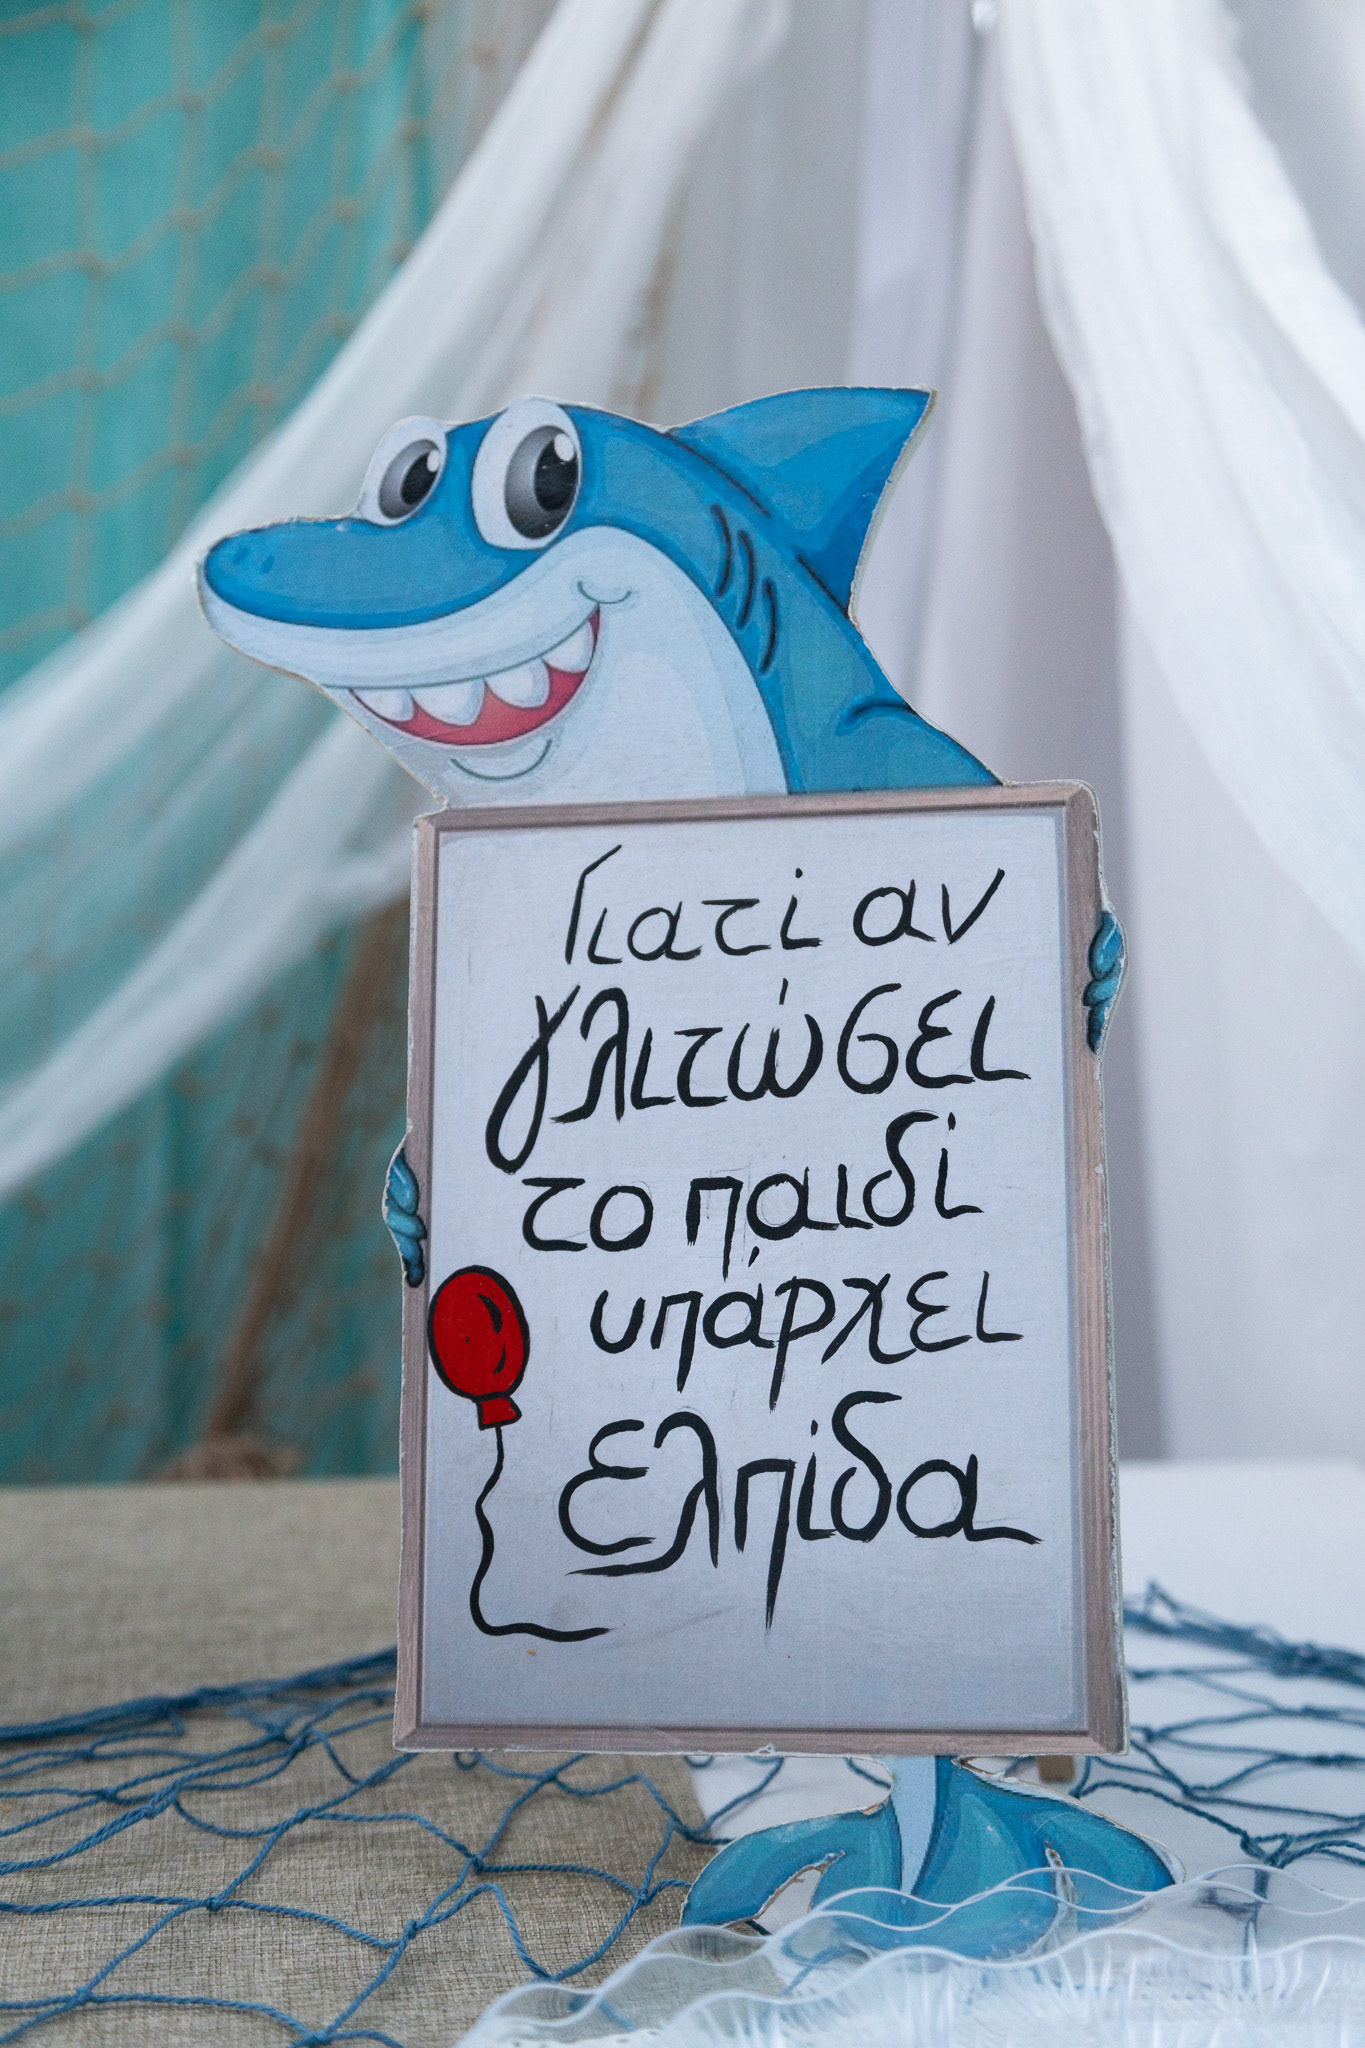 Γιατί αν
γλιτώσει
το παιδί
υπάρχει
ελπίδα